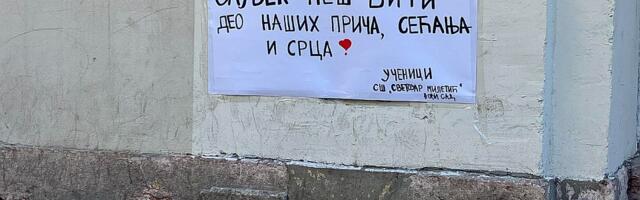 ЗАУВЕК ЋЕШ БИТИ
ДЕО НАШИХ ПРИЧА, СЕЋАЊА
И СРЦА
УЧЕНИЦИ
СШ „СВЕТОЗАР МИЛЕТИЋ“
НОВИ САД